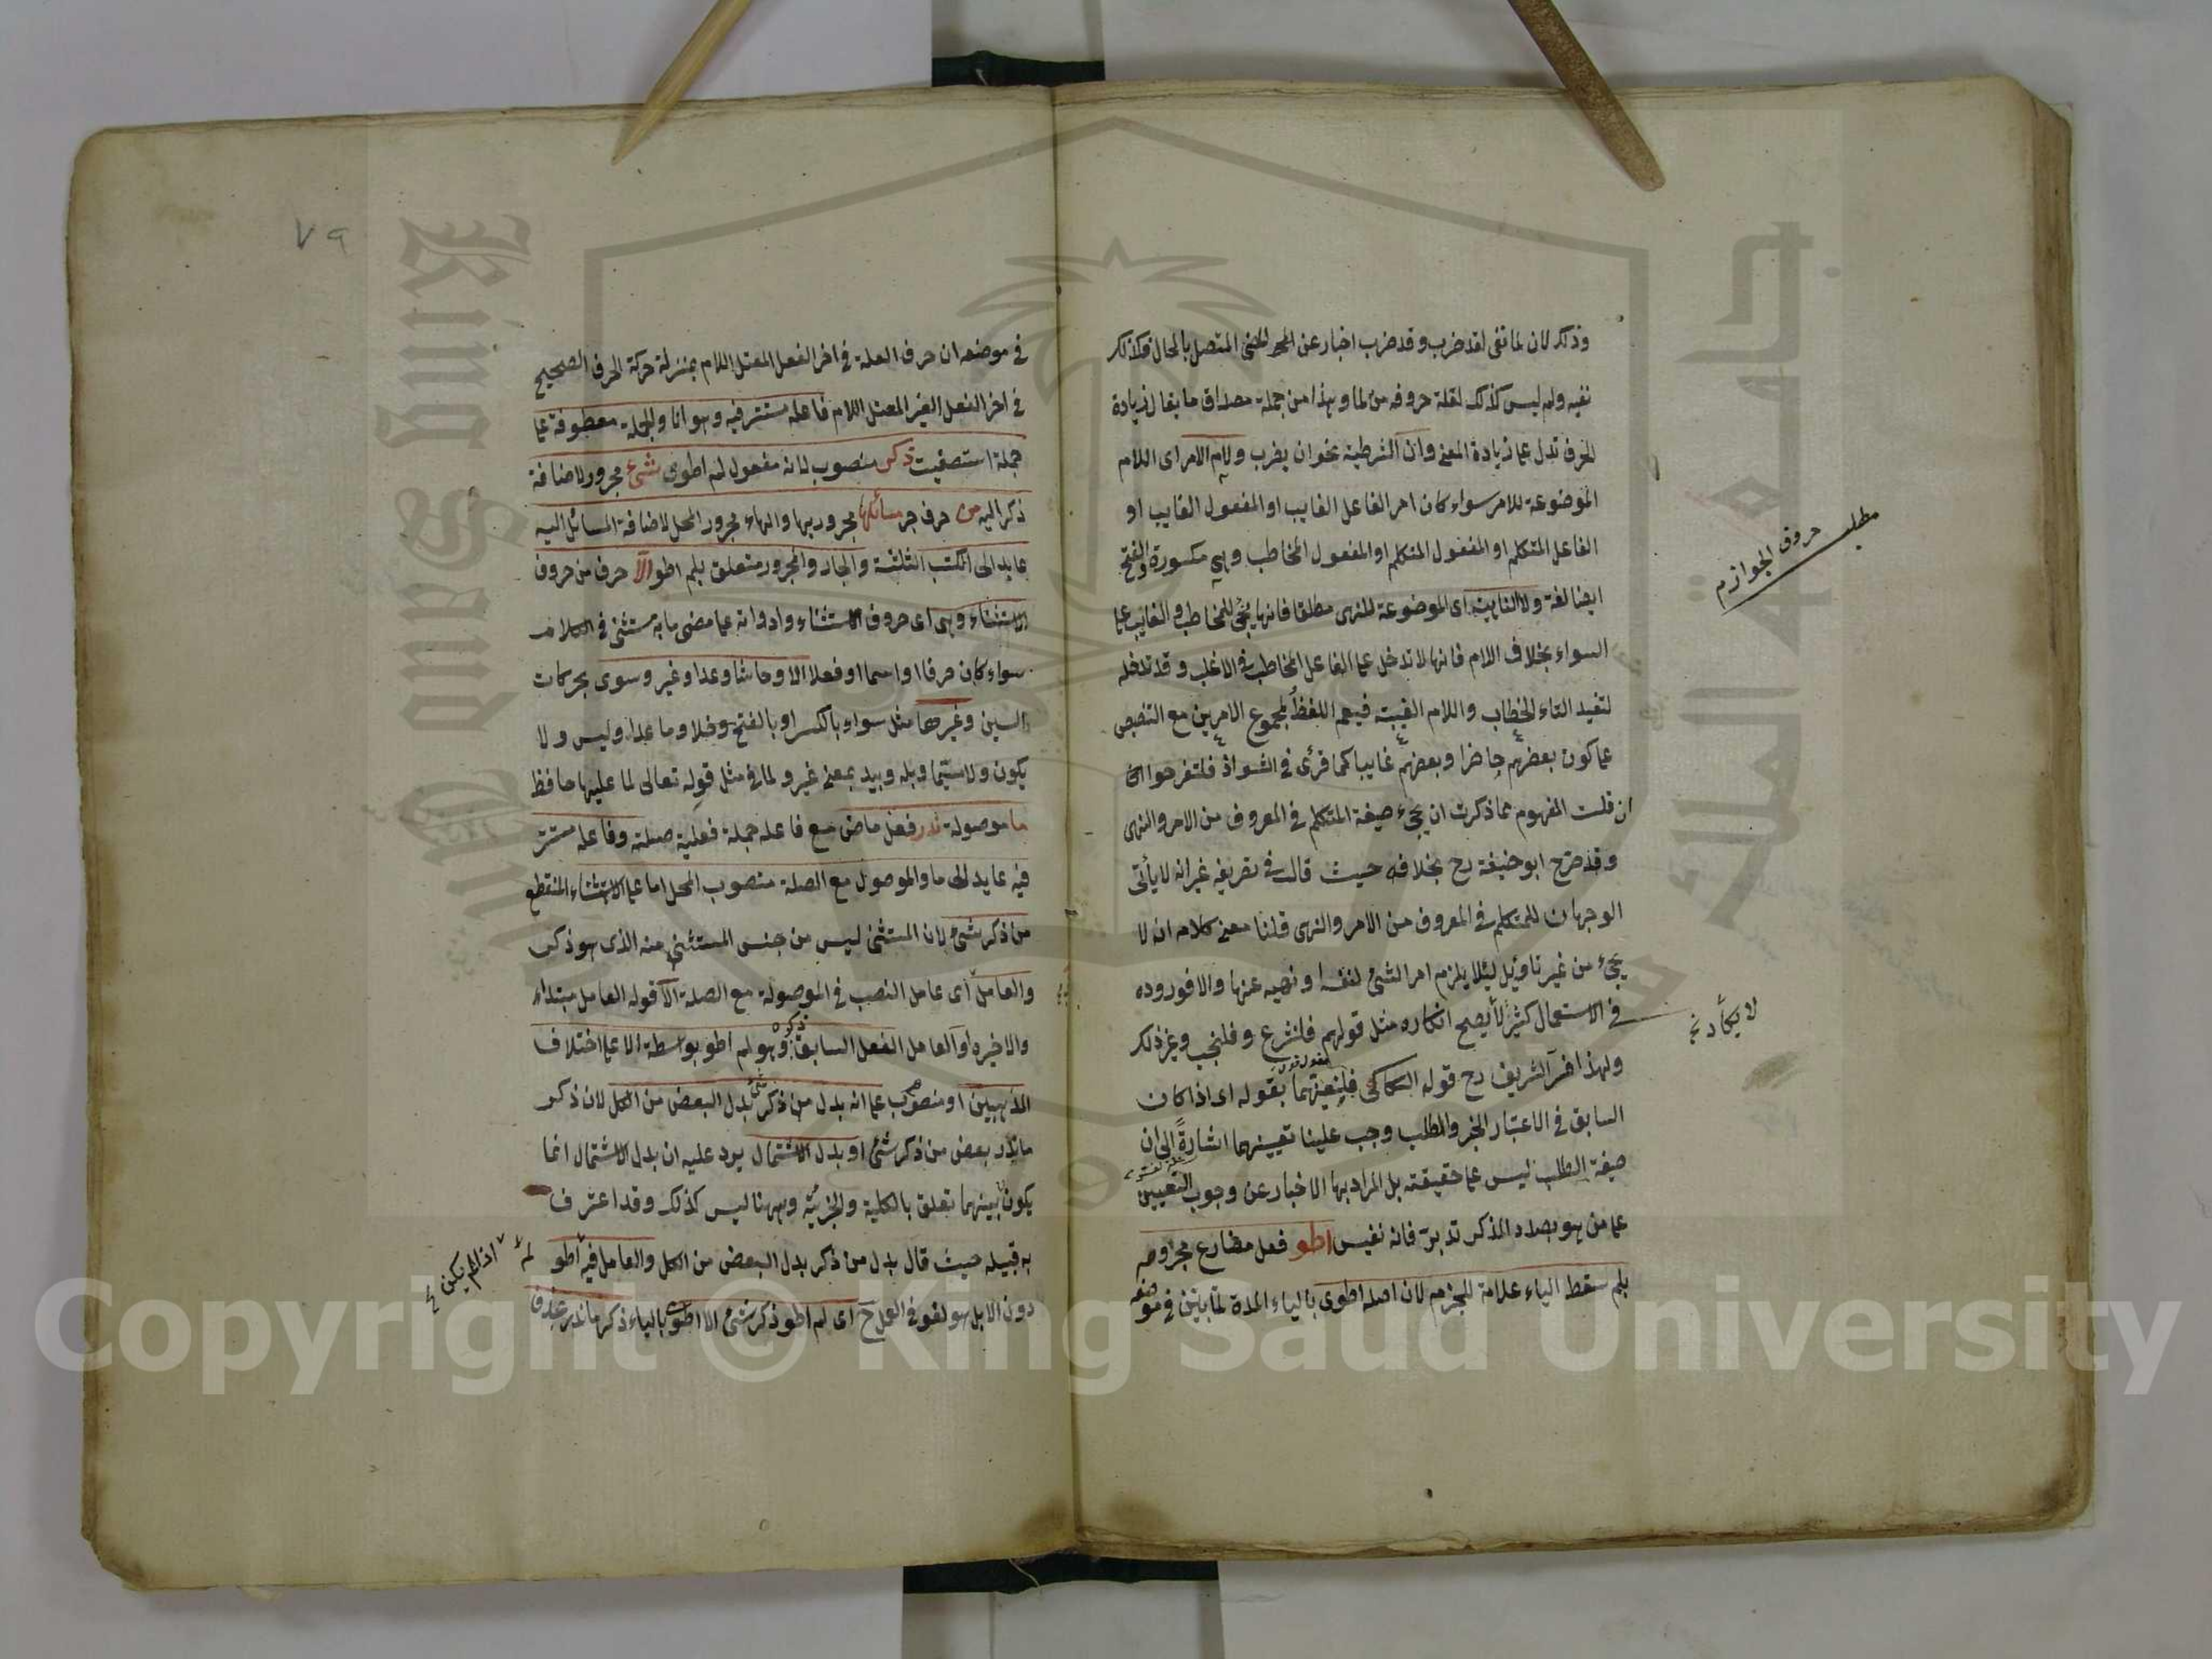 وذلك لان لما نفى لقد ضرب وقد ضرب اخبار عن المعنى المتصل بالحال فكذلك
نفيه ولم ليس كذلك لقلة حروفه من لما وهذا من جملة مصداق ما يقال زيادة
الحرف تدل على زيادة المعنى وان الشرطية نحو ان يضرب ولام الامر اى اللام
الموضوعة للامر سواء كان امر الفاعل الغايب او المفعول الغايب او
الفاعل المتكلم او المفعول المتكلم او المفعول المخاطب وهى مكسورة والفتح
ايضا لغة ولا الناهية اى الموضوعة للنهى مطلقا فانها يجئ للمخاطب والغايب على
السواء بخلاف اللام فانها لا تدخل على الفاعل المخاطب فى الاغلب وقد تدخله
لتفيد التاء الخطاب واللام الغيبة فيعم اللفظ لمجموع الامرين مع التنصيص
على كون بعضهم حاضرا وبعضهم غايبا كما قرئ فى الشواذ فلتفرحوا
ان قلت المفهوم مما ذكرت ان يجئ صيغة المتكلم فى المعروف من الامر والنهى
وقد صرح ابو حنيفة رح بخلافه حيث قال فى تصريفه غير انه لا يأتى
الوجهان للمتكلم فى المعروف من الامر والنهى قلنا معنى كلامه انه لا
يجئ من غير تاويل ليلا يلزم امر الشئ لنفسه او نهيه عنها والا فوروده
فى الاستعمال كثير لا يصح انكاره مثل قولهم فلنشرع و فلنجب وغير ذلك
ولهذا فسر الشريف رح قوله السكاكى فلنعينهما بقوله اى اذا كان
السابق فى الاعتبار الخبر والطلب وجب علينا تعيينهما اشارة الى ان
صيغة الطلب ليس على حقيقته بل المراد بها الاخبار عن وجوب التعيين
على من هو بصدد المذكر تدبر فانه نفيس اطو فعل مضارع مجزوم
بلم سقط الياء علامة للجزم لان اصله اطوى بالياء المدة لما بين فى موضعه
مطلب حروف الجوازم
لا يكاد
٧٩
فى موضعه ان حرف العلة فى اخر الفعل المعتل اللام بمنزلة حركة الحرف الصحيح
فى اخر الفعل الغير المعتل اللام فاعله مستتر فيه وهو انا والجملة معطوفة على
جملة استصفيت ذكر منصوب لانه مفعول لم اطوى شئ مجرور لاضافة
ذكر اليه من حرف جر مسائلها مجرور بها والهاء مجرور المحل لاضافة المسائل اليه
عايد الى الكتب الثلثة والجار والمجرور متعلق بلم اطو الا حرف من حروف
الاستثناء وهى اى حروف الاستثناء وادواته على مضى ما به مستثنى فى الكلام
سواء كان حرفا او اسما او فعلا الا وحاشا وعدا وغير وسوى بحركات
السين وغيرها مثل سواء بالكسر او بالفتح وخلا وما عدا وليس ولا
يكون ولا سيما وبله وبيد بمعنى غير ولما فى مثل قوله تعالى لما عليها حافظ
ما موصولة ندر فعل ماض مع فاعله جملة فعلية صلته وفاعله مستتر
فيه عايد الى ما والموصول مع الصلة منصوب المحل اما على الاستثناء المنقطع
من ذكر شئ لان المستثنى ليس من جنس المستثنى منه الذى هو ذكر
والعامل اى عامل النصب فى الموصولة مع الصلة الا قوله العامل مبتداء
والا خبره او العامل الفعل السابق ذكره وهو لم اطو بواسطة الا على اختلاف
المذهبين او منصوب على انه بدل من ذكر شئ بدل البعض من الكل لان ذكر
ما ندر بعض من ذكر شئ او بدل الاشتمال يرد عليه ان بدل الاشتمال انما
يكون بينهما تعلق بالكلية والجزئية وههنا ليس كذلك وقد اعترف
به قبيله حيث قال بدل من ذكر بدل البعض من الكل والعامل فيه اطو
دون الا بل هو لغو فى العمل ح اى لم اطو ذكر شئ الا اطوى بالياء ذكر ما ندر حذف
لم اذا لم يكن
Copyright © King Saud University
King Saud University
جامعة الملك سعود